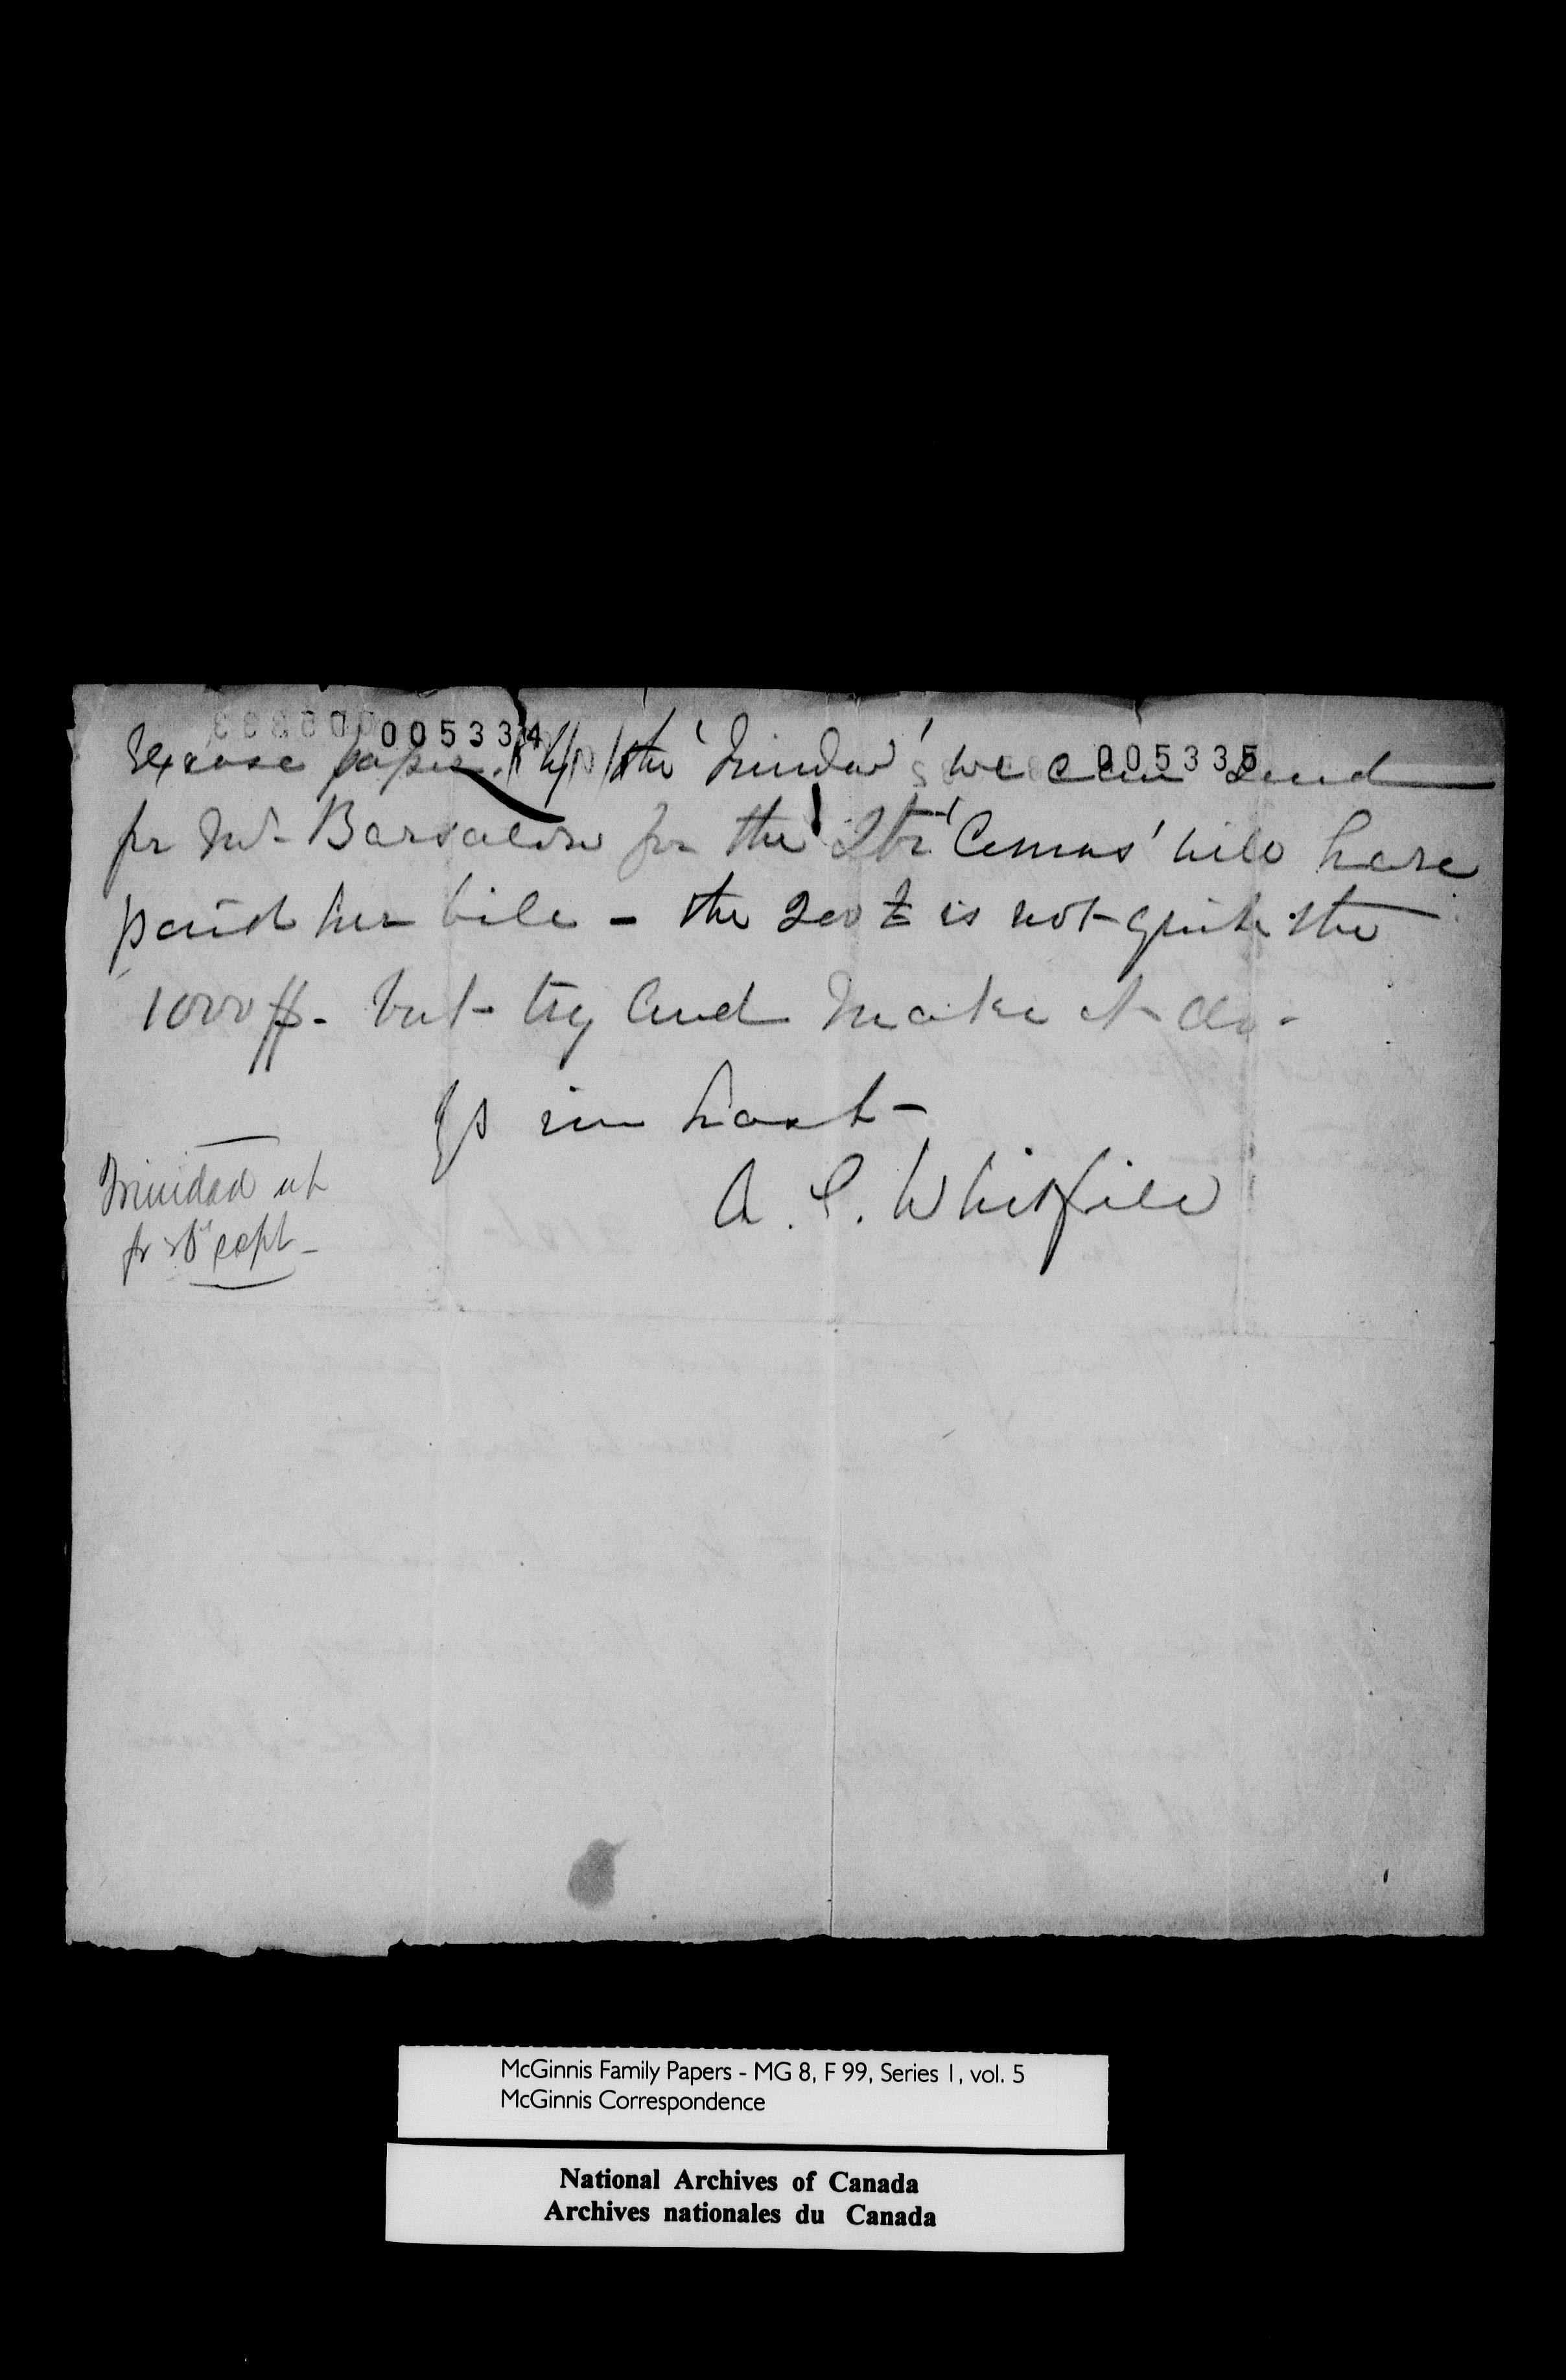 005334
005335
Excuse paper. the 'Trinidad' we can send
for Mr Barsalou for the 'Comus' will have
paid her bill - the 200 £ is not quite the
1000 $. but try and make it do -
Ys in haste -
A. C. Whitfield
Trinidad
Sept -
McGinnis Family Papers - MG 8, F 99, Series 1, vol. 5
McGinnis Correspondence
National Archives of Canada
Archives nationales du Canada